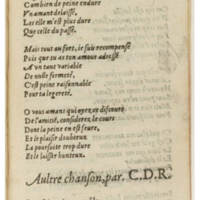 Combien de peine endure
Vn amant delaissé,
Les elle m'est plus dure
Que celle du passé.
Mais tout au fort, ie suis recompensé
Puis que tu as ton amour adressé
A vn tant variable
De nulle fermeté,
C'est peine raisonnable
Pour ta legereté.
O vous amans qui ayez ce discours
De l'amitié, considerez le cours
Dont la peine en est seure,
Et le plaisir doubteux
La poursuite trop dure
Et le laisser honteux.
Aultre chanson, par C.D.R.